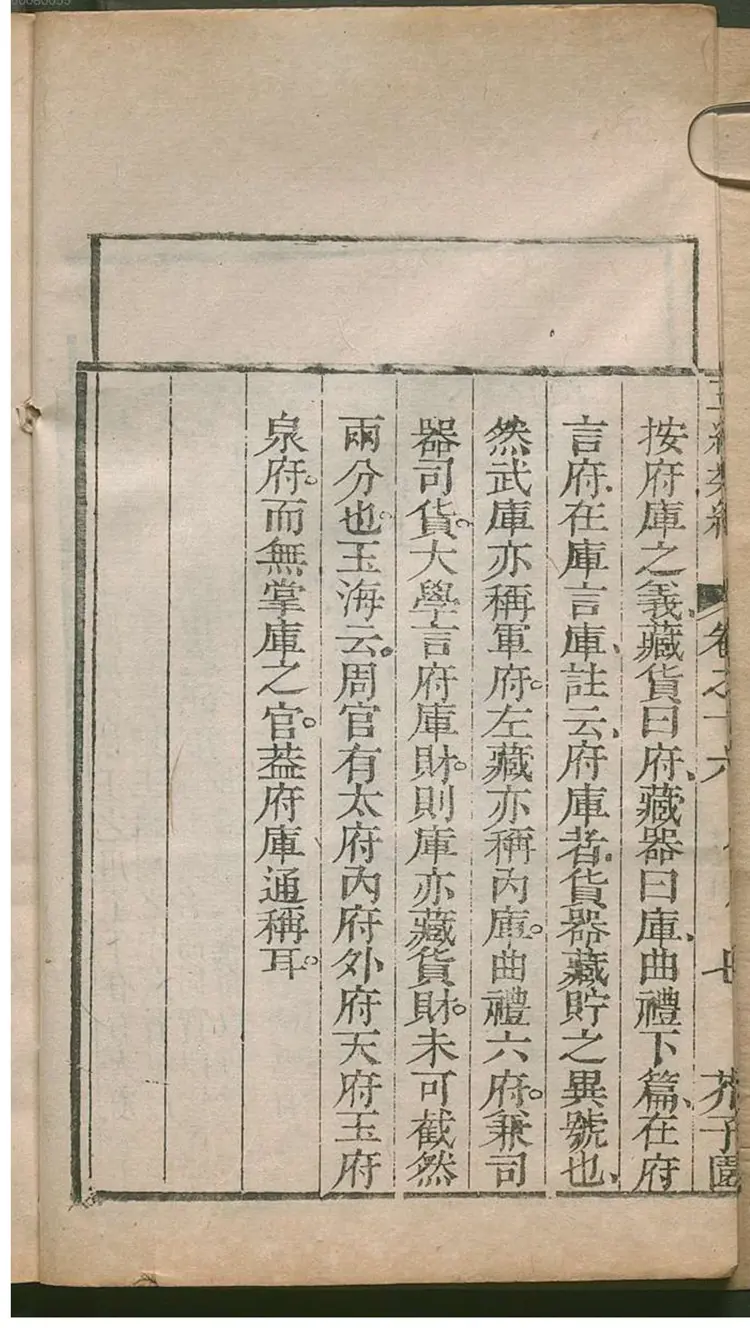 卷之十六
芥子園
按府庫之義、藏貨曰府、藏器曰庫、曲禮下篇、在府
言府、在庫言庫、註云、府庫者、貨器藏貯之異號也、
然武庫亦稱軍府。左藏亦稱內庫。曲禮六府。兼司
器司貨。大學言府庫財。則庫亦藏貨財。未可截然
兩分也。玉海云。周官有太府內府外府天府玉府
泉府。而無掌庫之官。蓋府庫通稱耳。